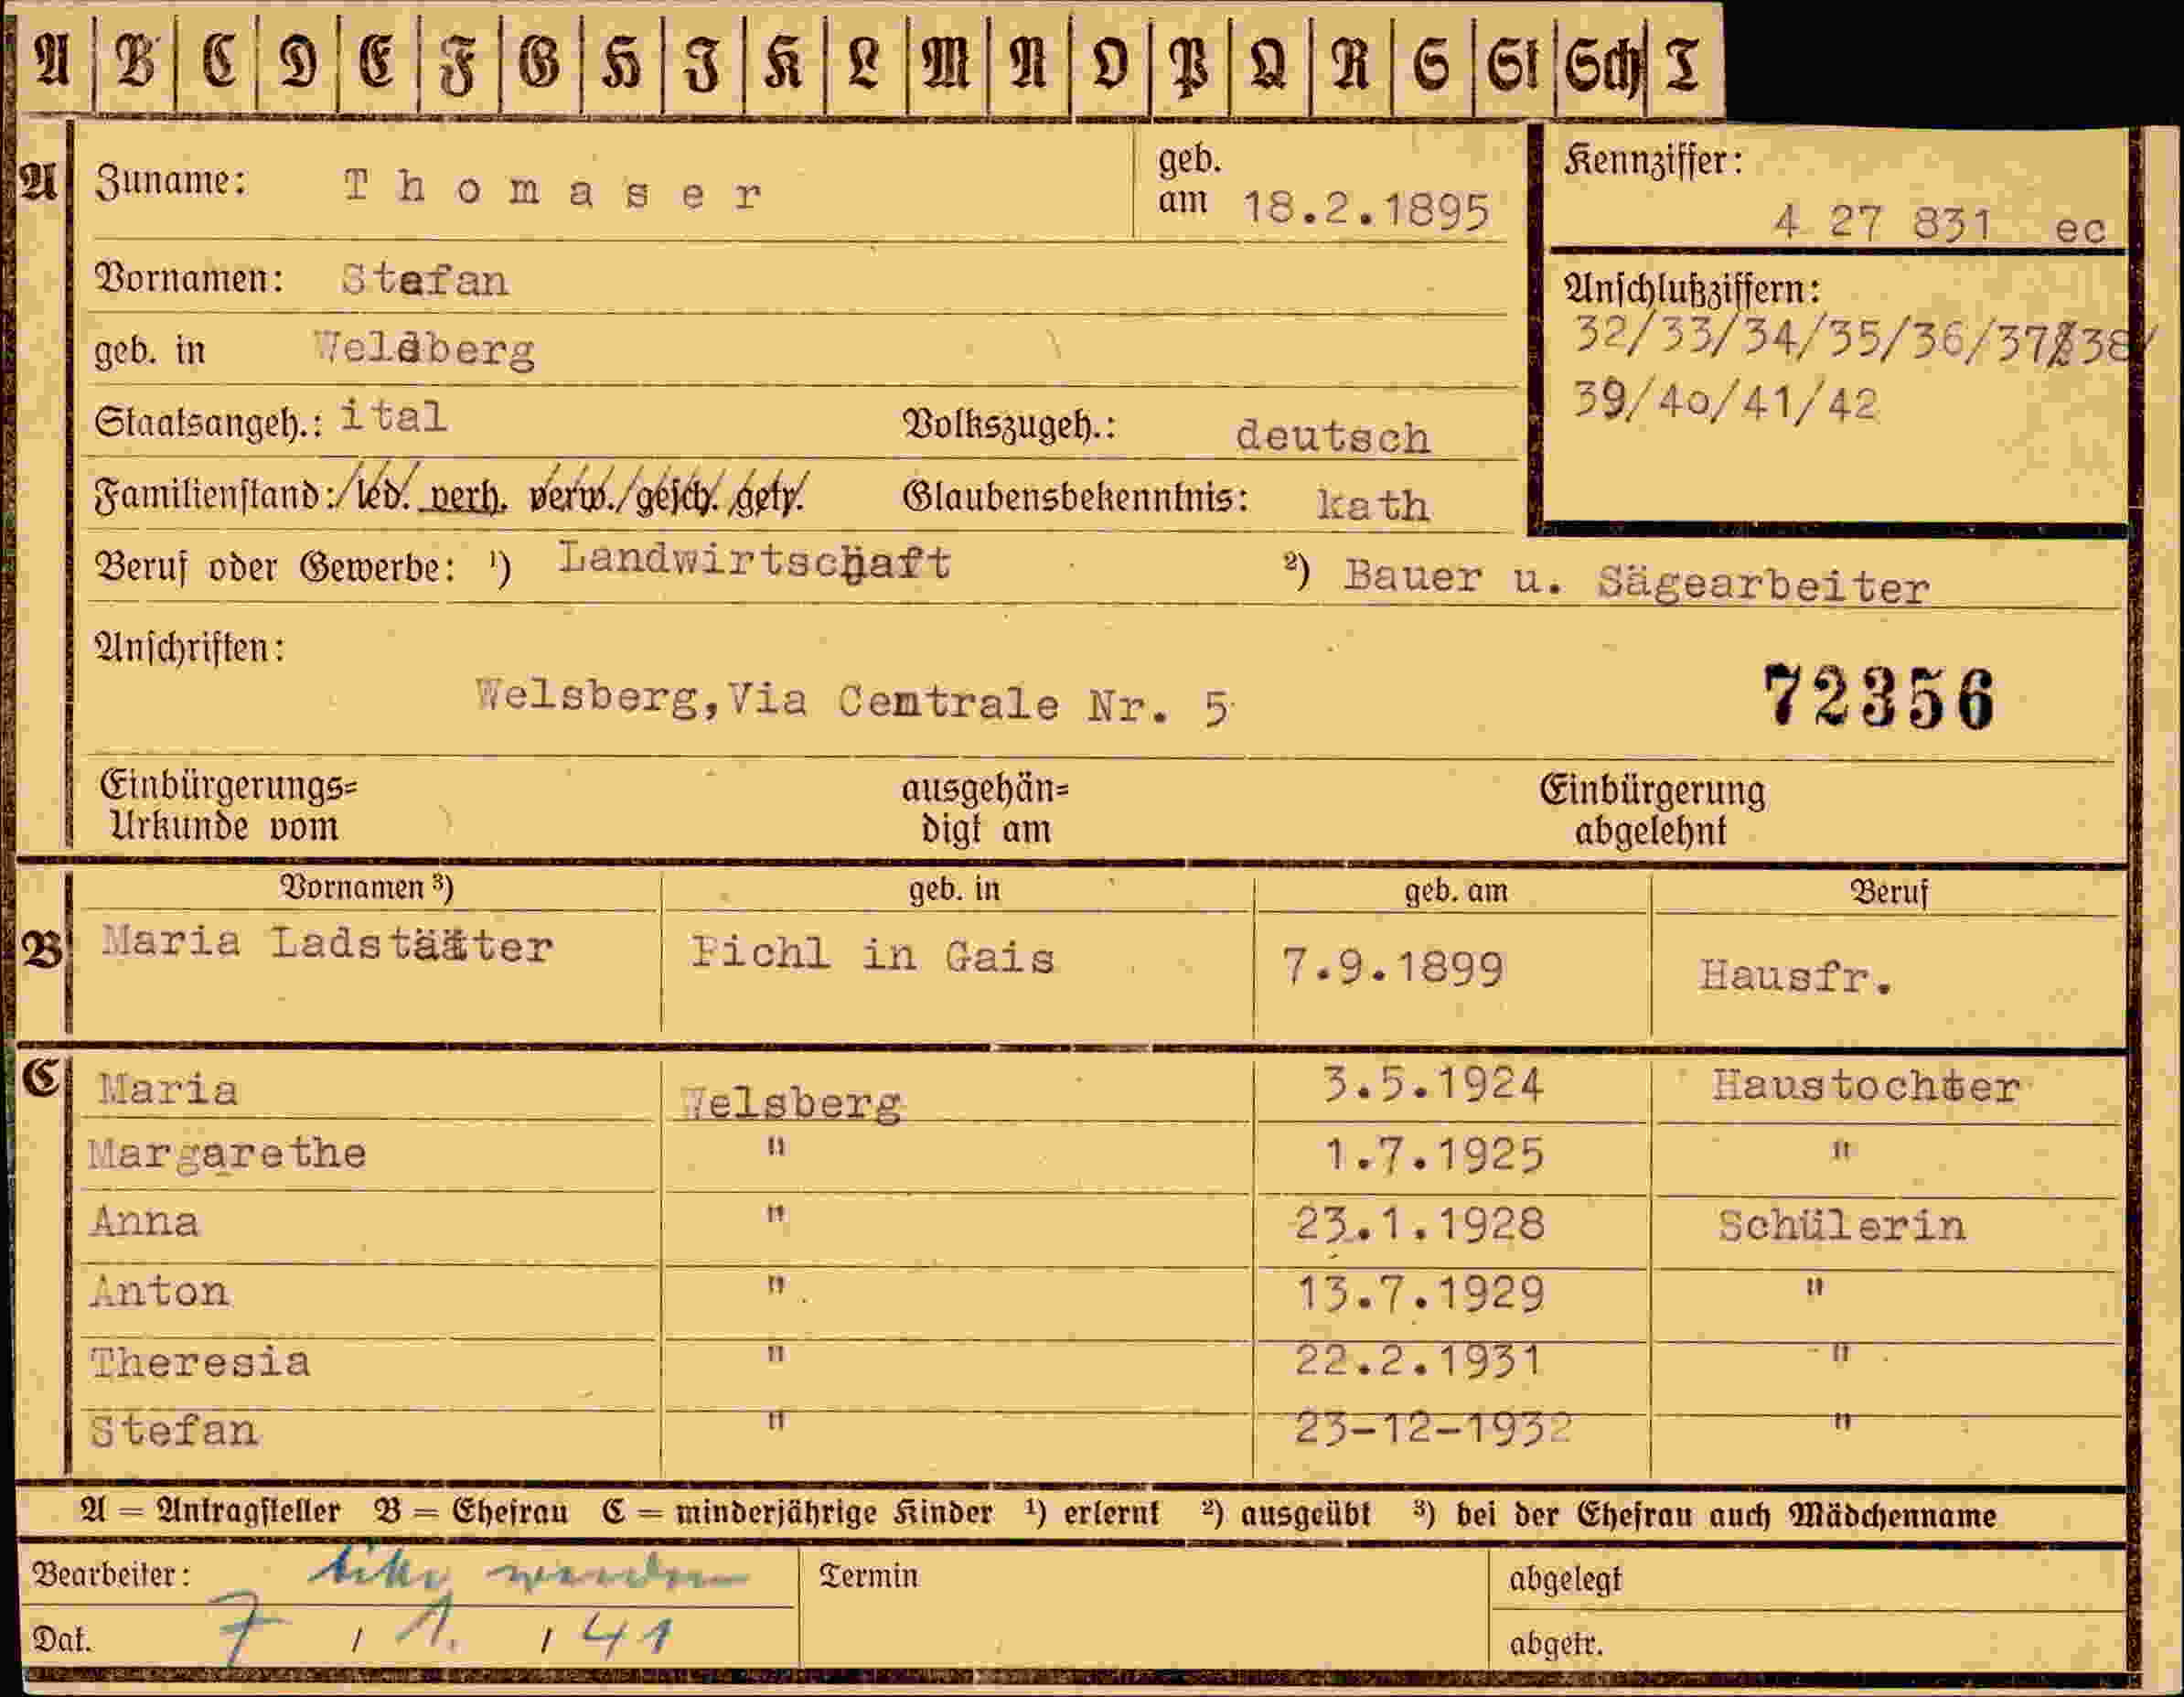 A B C D E F G H I K L M N O P Q R S St Sch T
A Zuname: Thomaser geb. am 18.2.1895 Kennziffer: 4 27 831 ec
Vornamen: Stefan
Anschlußziffern:
32/33/34/35/36/37/38/
39/40/41/42
geb. in
Staatsangeh.: ital Volkszugeh.: deutsch
Familienstand: led. verh. verw. gesch. getr. Glaubensbekenntnis: kath
Beruf oder Gewerbe: ¹) Landwirtschaft ²) Bauer u. Sägearbeiter
Anschriften:
Welsberg, Via Centrale Nr. 5 72356
Einbürgerungs= ausgehän= Einbürgerung
Urkunde vom digt am abgelehnt
Vornamen ³) geb. in geb. am Beruf
B Maria Ladstätter Pichl in Gais 7.9.1899 Hausfr.
C Maria Welsberg 3.5.1924 Haustochter
Margarethe " 1.7.1925 "
Anna " 23.1.1928 Schülerin
Anton " 13.7.1929 "
Theresia " 22.2.1931 "
Stefan " 23-12-1932 "
A = Antragsteller B = Ehefrau C = minderjährige Kinder ¹) erlernt ²) ausgeübt ³) bei der Ehefrau auch Mädchenname
Bearbeiter: Termin abgelegt
Dat. 7 , 1. , 41 abgetr.